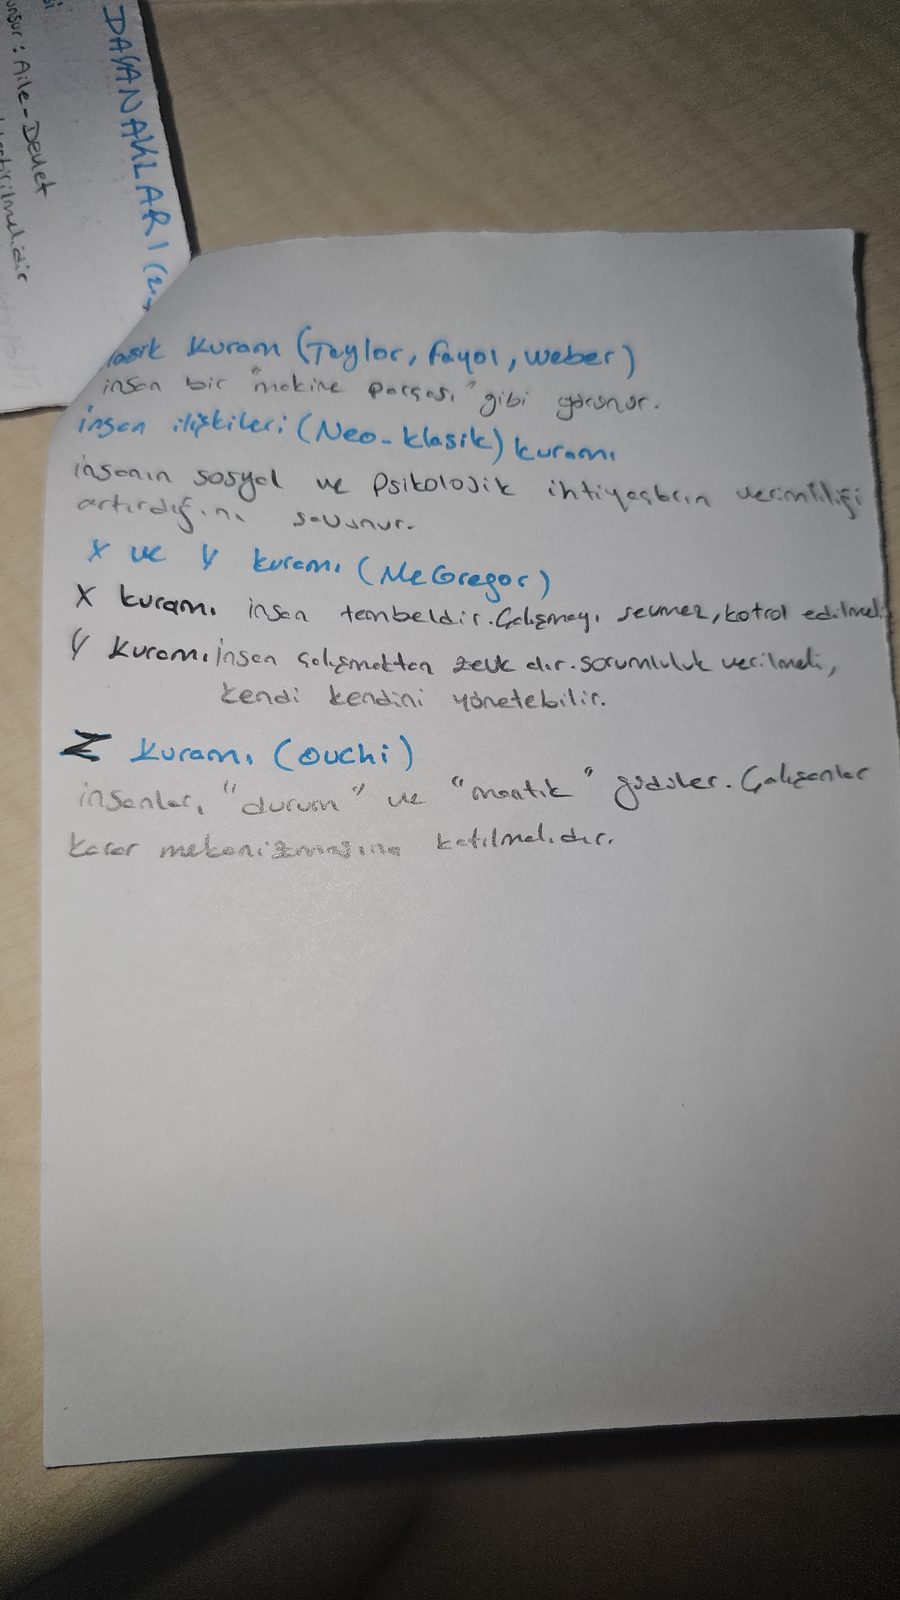 DAYANAKLARI
unsur : Aile-Devlet
lasik kuram (Taylor, fayol, weber)
insan bir "makine parçası" gibi görünür.
insan ilişkileri (Neo-klasik) kuramı
insanın sosyal ve psikolojik ihtiyaçların verimliliği
artırdığını savunur.
X ve Y kuramı (McGregor)
X kuramı insan tembeldir. Çalışmayı sevmez, kotrol edilmeli
Y kuramı insan çalışmaktan zevk alır. sorumluluk verilmeli,
kendi kendini yönetebilir.
Z kuramı (ouchi)
insanları "durum" ve "mantık" güdüler. Çalışanlar
karar mekanizmasına katılmalıdır.